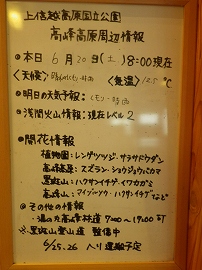 上信越高原国立公園
高峰高原周辺情報
◎本日 6月20日(土) 8:00現在
<天候> <気温> 12.5 ℃
◎明日の天気予報:くもり一時雨
◎浅間火山情報:現在レベル2
◎開花情報
植物園:レンゲツツジ・サラサドウダン
高峰高原:スズラン・ショウジョウバカマ
黒斑山:ハクサンイチゲ・イワカガミ
高峰山:マイヅルソウ・ハクサンイチゲなど
◎その他の情報
・湯の丸高峰林道 7:00〜17:00 可
※黒斑山登山道 整備中
6/25.26